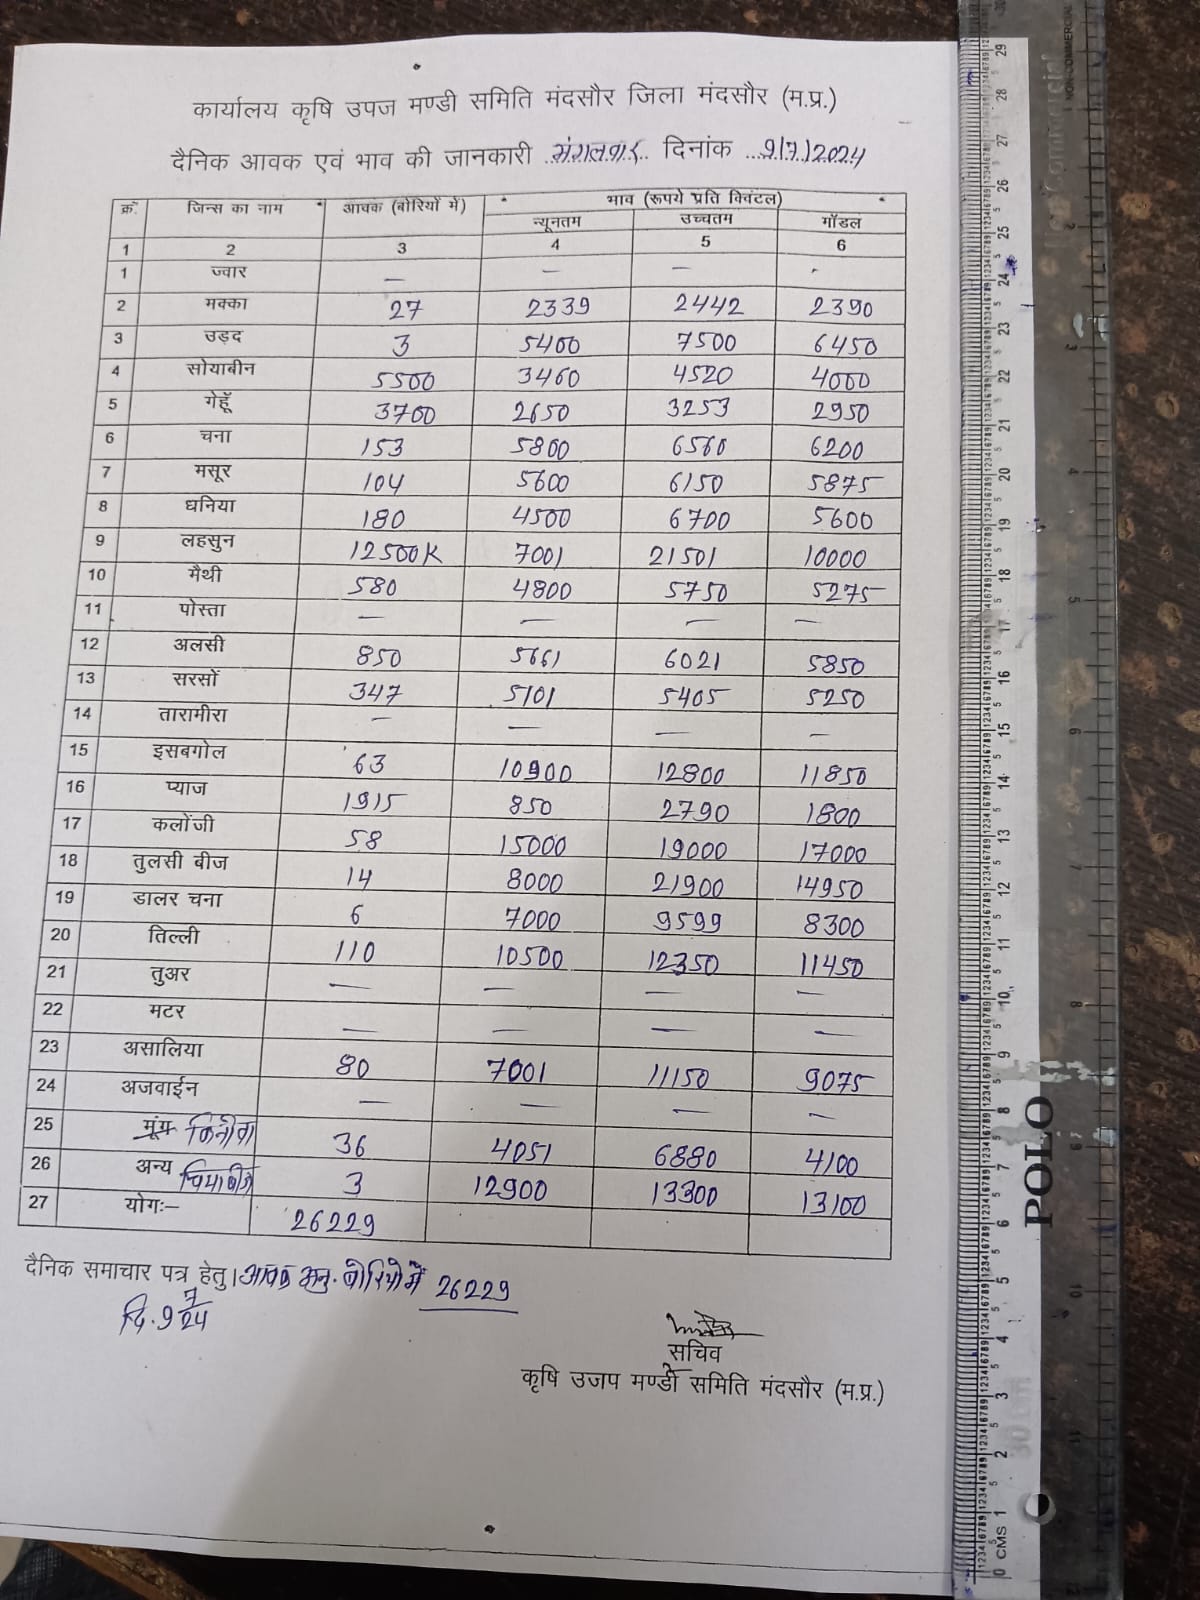 कार्यालय कृषि उपज मण्डी समिति मंदसौर जिला मंदसौर (म.प्र.)
दैनिक आवक एवं भाव की जानकारी ..मंगलवार.. दिनांक ...9/7/2024
क्र. जिन्स का नाम आवक (बोरियों में) भाव (रूपये प्रति क्विंटल)
न्यूनतम उच्चतम मॉडल
1 2 3 4 5 6
1 ज्वार — — —
2 मक्का 27 2339 2442 2390
3 उड़द 3 5400 7500 6450
4 सोयाबीन 5500 3460 4520 4000
5 गेहूँ 3700 2650 3253 2950
6 चना 153 5800 6560 6200
7 मसूर 104 5600 6150 5875
8 धनिया 180 4500 6700 5600
9 लहसुन 12500K 7001 21501 10000
10 मैथी 580 4800 5750 5275
11 पोस्ता — — — —
12 अलसी 850 5661 6021 5850
13 सरसों 347 5101 5405 5250
14 तारामीरा — — — —
15 इसबगोल 63 10900 12800 11850
16 प्याज 1915 850 2790 1800
17 कलोंजी 58 15000 19000 17000
18 तुलसी बीज 14 8000 21900 14950
19 डालर चना 6 7000 9599 8300
20 तिल्ली 110 10500 12350 11450
21 तुअर — — — —
22 मटर — — — —
23 असालिया 80 7001 11150 9075
24 अजवाईन — — — —
25 मूंग किनोवा 36 4051 6880 4100
26 अन्य चियाबीज 3 12900 13300 13100
27 योगः— 26229
दैनिक समाचार पत्र हेतु। आवक अनु. बोरियो में 26229
दि. 9 7/24
सचिव
कृषि उजप मण्डी समिति मंदसौर (म.प्र.)
POLO
CMS